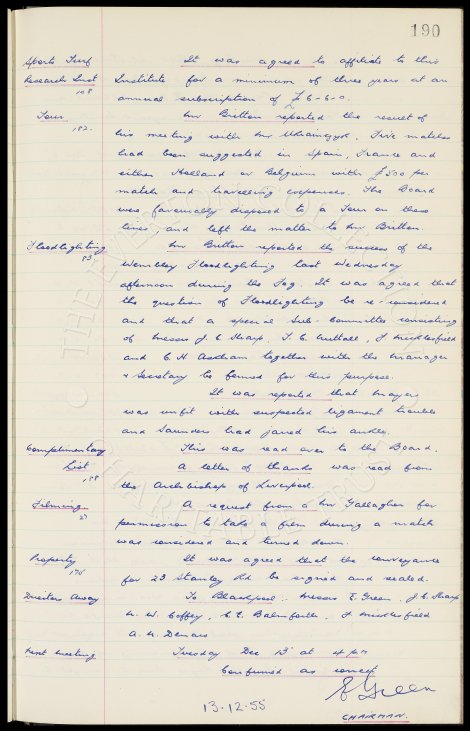 190
Sports Turf It was agreed to affiliate to this
Research Inst Institute for a minimum of three years at an
108 annual subscription of £6-6-0.
Tour Mr Britton reported the result of
182. his meeting with Mr Five matches
had been suggested in Spain, France and
either Holland or Belgium with £500 per
match and travelling expenses. The Board
were favourably disposed to a Tour on these
lines, and left the matter to Mr Britton.
Floodlighting Mr Britton reported the success of the
83 Wembley Floodlighting last Wednesday
afternoon during the Fog. It was agreed that
the question of Floodlighting be re-considered
and that a special Sub-Committee consisting
of Messrs J. C. Sharp, T. C. Nuttall, F Micklesfield
and C H Askham together with the Manager
& Secretary be formed for this purpose.
It was reported that Mayers
was unfit with suspected ligament trouble
and Saunders had jarred his ankle.
Complimentary This was read over to the Board.
List A letter of thanks was read from
188 the Archbishop of Liverpool.
Filming A request from a Mr Gallagher for
27 permission to take a film during a match
was considered and turned down.
Property It was agreed that the conveyance
170 for 23 Stanley Rd be signed and sealed.
Directors Away To Blackpool: Messrs E. Green, J. C. Sharp
W. W. Coffey, C. E. Balmforth, F Micklesfield
A. W. Denaro
Next Meeting Tuesday Dec 13 at 4 pm
Confirmed as correct
E Green
13-12-55
CHAIRMAN.
THE EVERTON COLLECTION
CHARITABLE TRUST